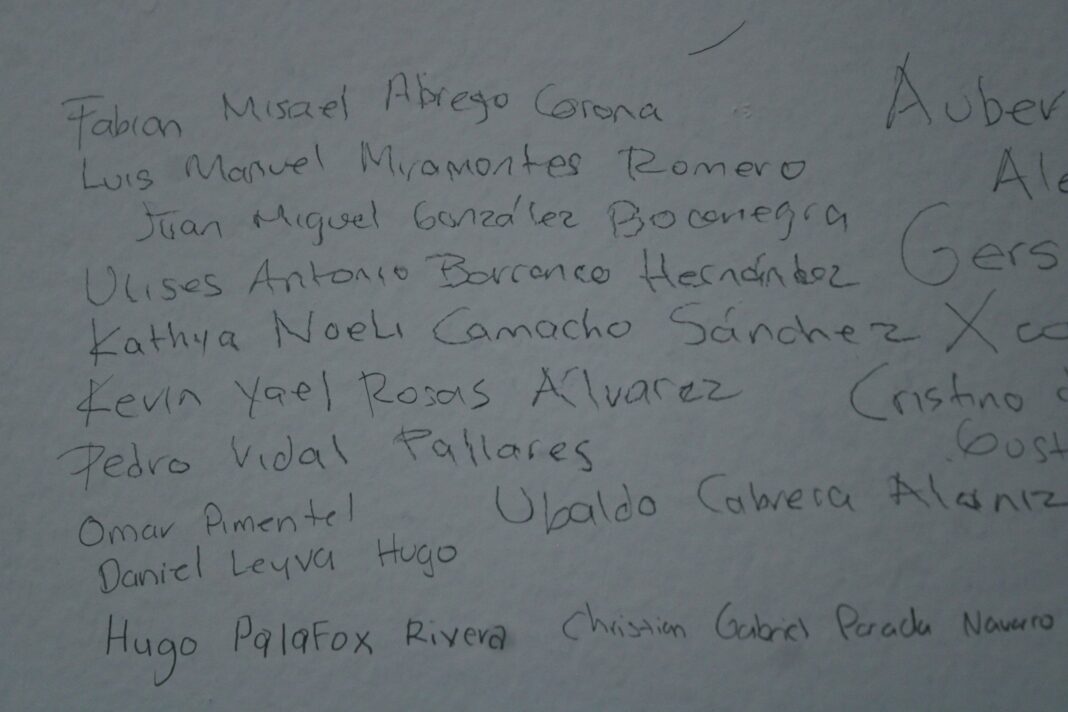 Fabian Misael Abrego Corona
Auber
Luis Manuel Miramontes Romero
Ale
Juan Miguel González Boconegra
Gers
Ulises Antonio Barranco Hernández
Kathya Noeli Camacho Sánchez
Xco
Kevin Yael Rosas Álvarez
Cristino
Pedro Vidal Pallares
Gust
Omar Pimentel
Ubaldo Cabrera Alaniz
Daniel Leyva Hugo
Hugo Palafox Rivera
Christian Gabriel Parada Navarro